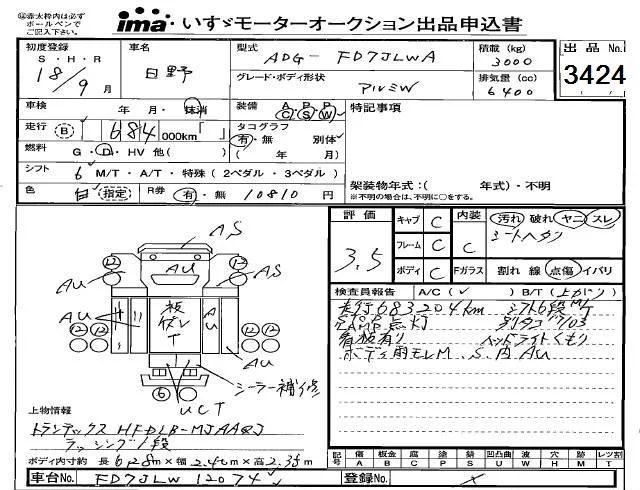 ㊟赤太枠内は必ず
ボールペンで
ご記入下さい。
ima いすゞモーターオークション出品申込書
初度登録 車名 型式 ADG- FD7JLWA 積載 (kg) 3000 出品 No.
S・H・R 18/9月 日野 グレード・ボディ形状 アルミW 排気量 (cc) 6400 3424
車検 年・月・抹消 装備 A・P・P C S W 特記事項
走行 B 684 000km「 」 タコグラフ 有・無 別体
燃料 G・D・HV 他( ) ( 年 月)
シフト 6 M/T・A/T・特殊 (2ペダル・3ペダル) 架装物年式:( 年式)・不明
色 白 (指定) R券 有・無 10810 円 ※不明の場合は、不明に○をする。
評価 キャブ C 内装 汚れ 破れ ヤニ スレ
3.5 フレーム C C シートヘタリ
ボディ C Fガラス 割れ 線 点傷 イバリ
検査員報告 A/C( ) B/T (上がり)
走行683204km シフト6段M/T
点灯
看板有り ヘッドライトくもり
S.内AU
AS
AU
AU
AS
AU
AU
AU
シーラー補修
UCT
上物情報
トランテックス HFDLB-MJAAQJ
ラッシング1段
ボディ内寸約 長 6.28m×幅 2.40m×高 2.35m
記号 傷 板金 腐 塗 錆 凹凸曲 波 穴 跡 レツ割
A B C P S U W H M T
車台No. FD7JLW 12074 登録No.